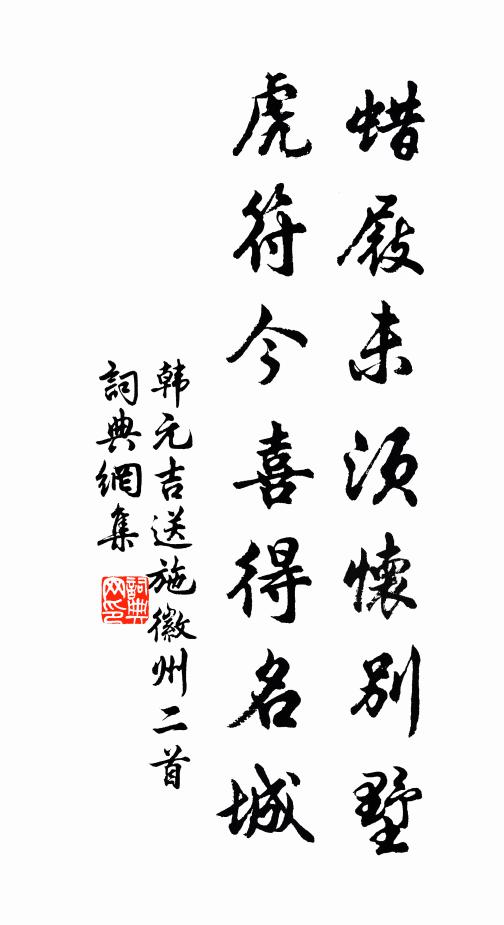 蜡屐未須懷别墅
虎符今喜得名城
韩元吉送施徽州二首
詞典網集
詞典网印